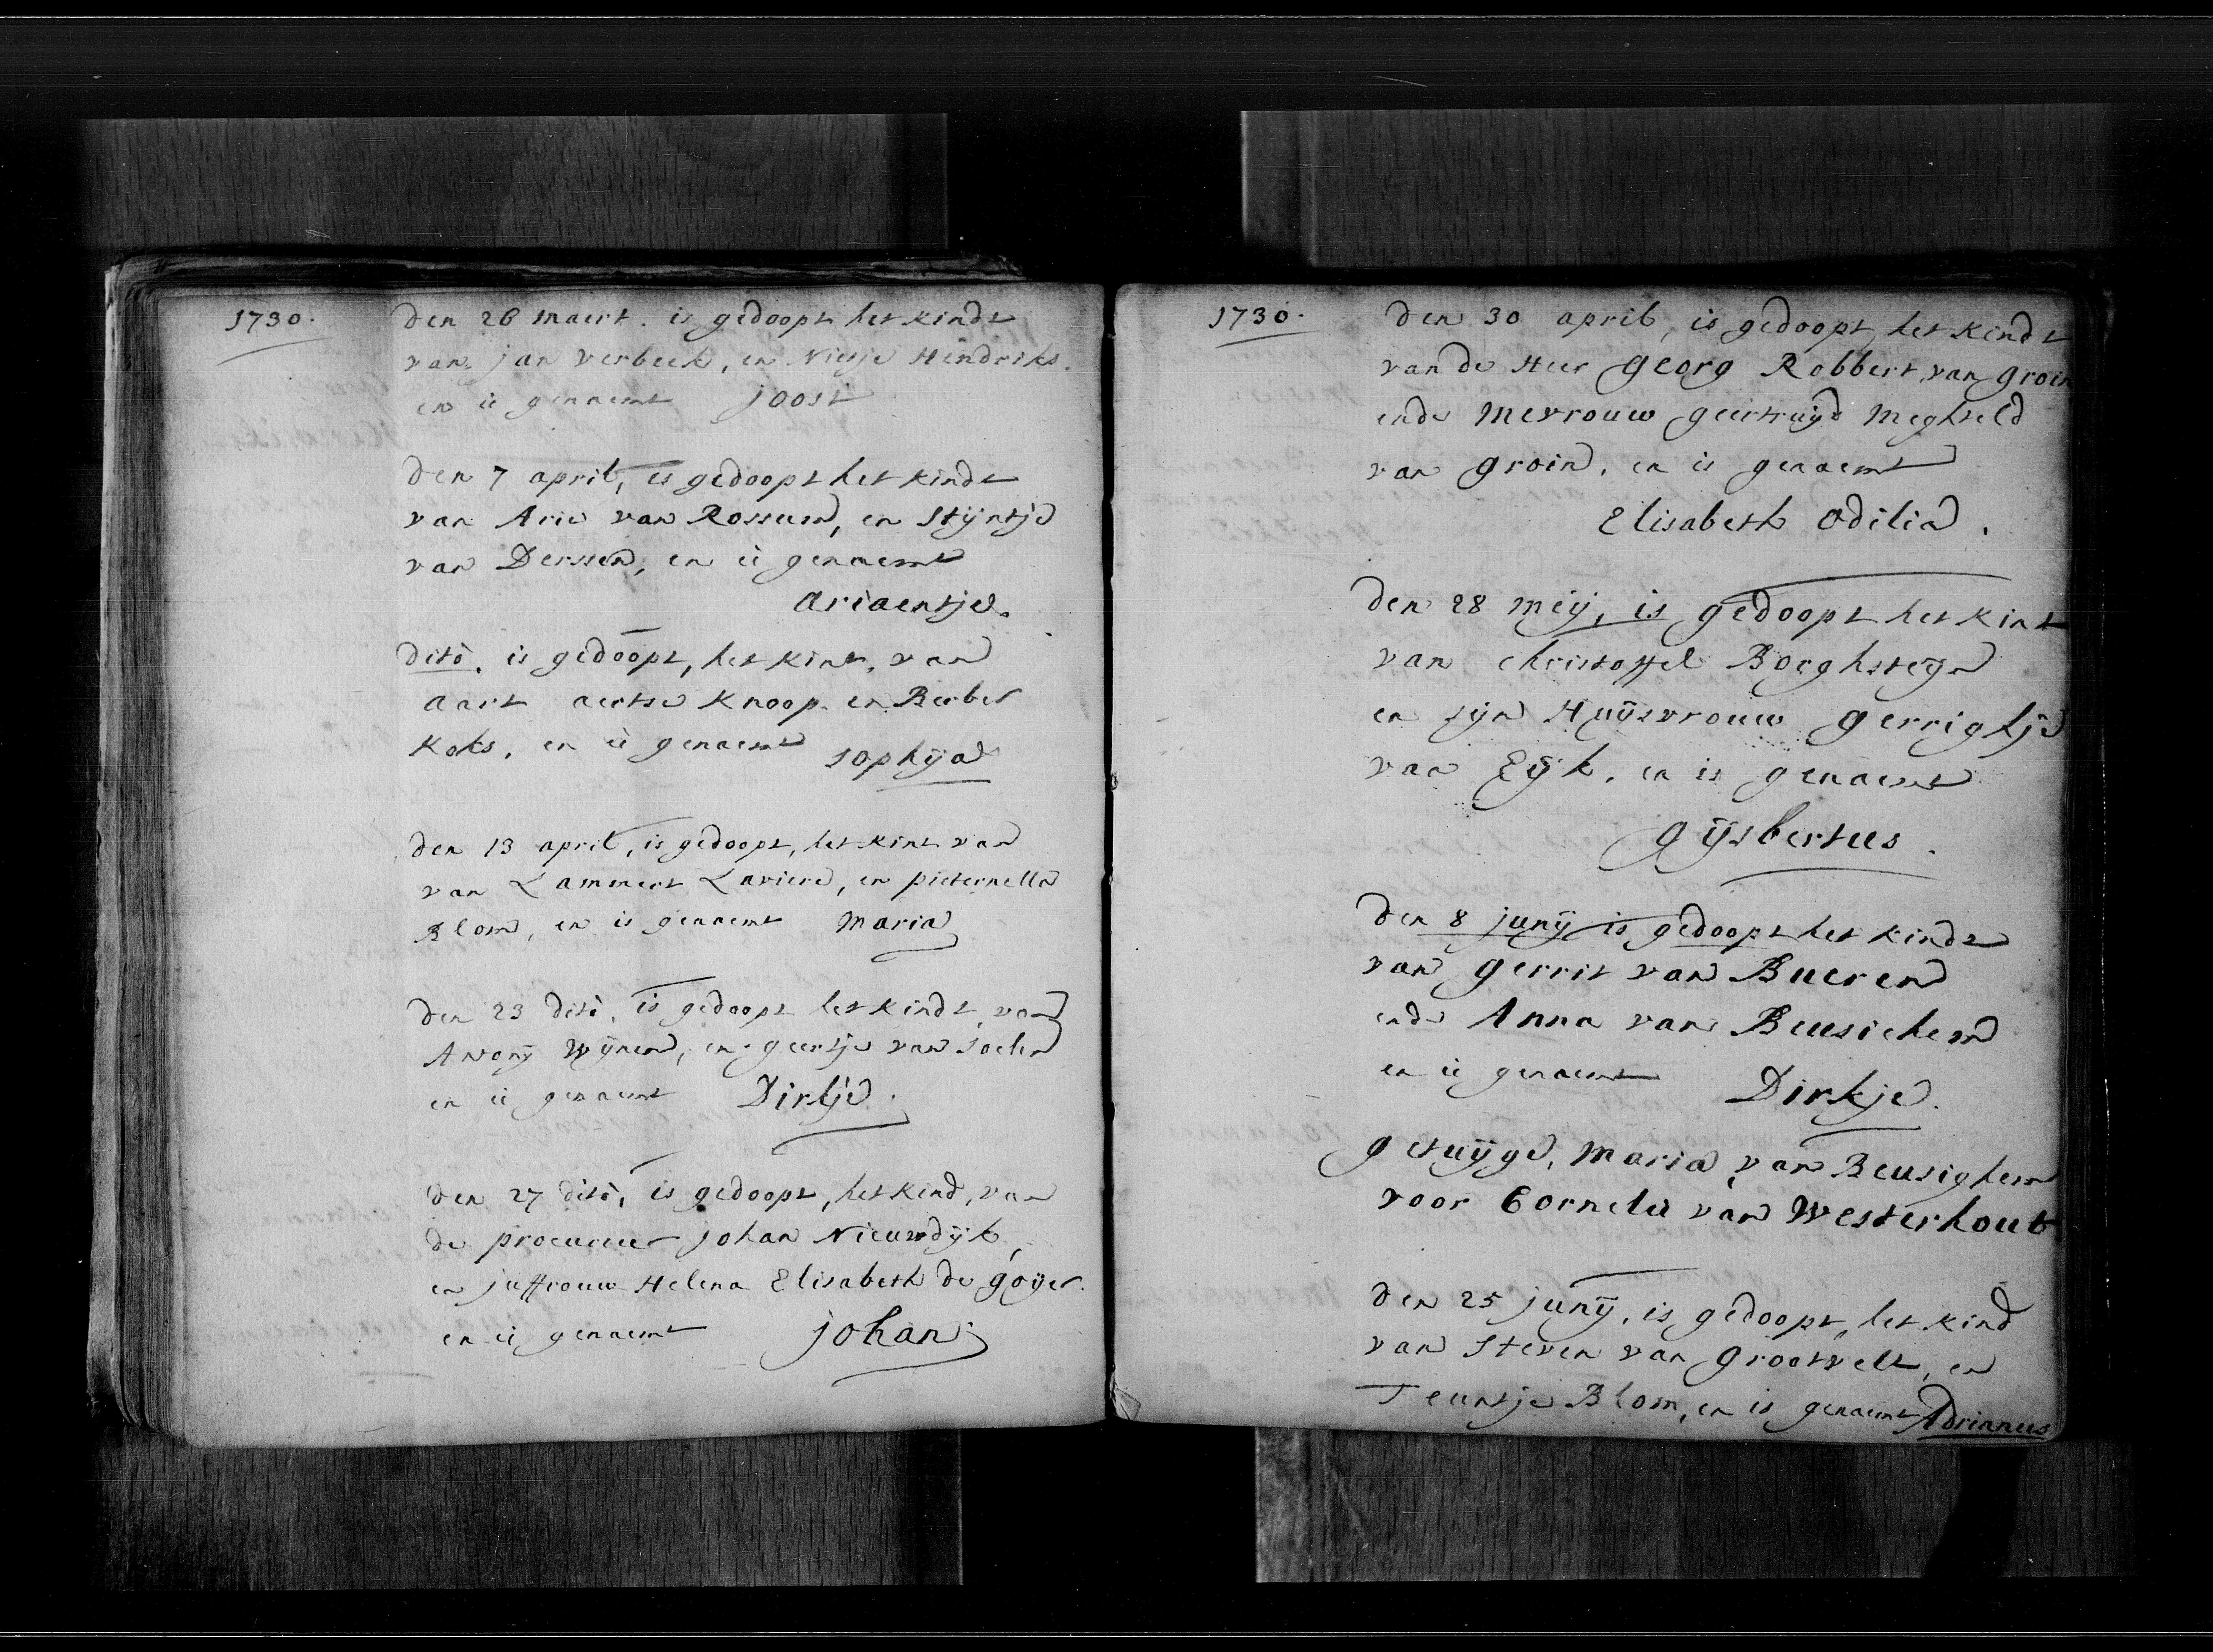 1730.
Den 26 maert. is gedoopt het kindt
van jan verbeek, en Niesje Hendriks.
en is genaemt joost
Den 7 april, is gedoopt het kindt
van Arie van Rossum, en Stijntje
van Derssen, en is genaemt
Ariaentje.
dito. is gedoopt, het kint, van
Aart aertse Knoop en Berber
Koks, en is genaemt sophija
Den 13 april, is gedoopt, het kint van
van Lammert Laviere, en pieternella
Blom, en is genaemt Maria
Den 23 dito, is gedoopt het kindt van
Antonÿ Wÿnen, en geertje van soelen
en is genaemt Dirkje.
Den 27 dito, is gedoopt, het kind, van
de procureur johan Nieuwdijk,
en juffrouw Helena Elisabeth de goijer.
en is genaemt johan
1730.
Den 30 april, is gedoopt, het kindt
van de Heer Georg Robbert van groin
ende Mevrouw geertruijd Meghteld
van groin, en is genaemt
Elisabeth Odilia.
Den 28 meij, is gedoopt het kint
van christoffel Borghsteijn
en sijn Huijsvrouw gerrigtje
van Eijk. en is genaemt
Gijsbertus.
Den 8 junij is gedoopt het kindt
van gerrit van Bueren
ende Anna van Beusichem
en is genaemt Dirkje.
getuijge, Maria van Beusighem
voor Cornelia van Westerhout
Den 25 junij, is gedoopt, het kind
van Steven van Grootvelt, en
Teuntje Blom, en is genaemt Adrianus